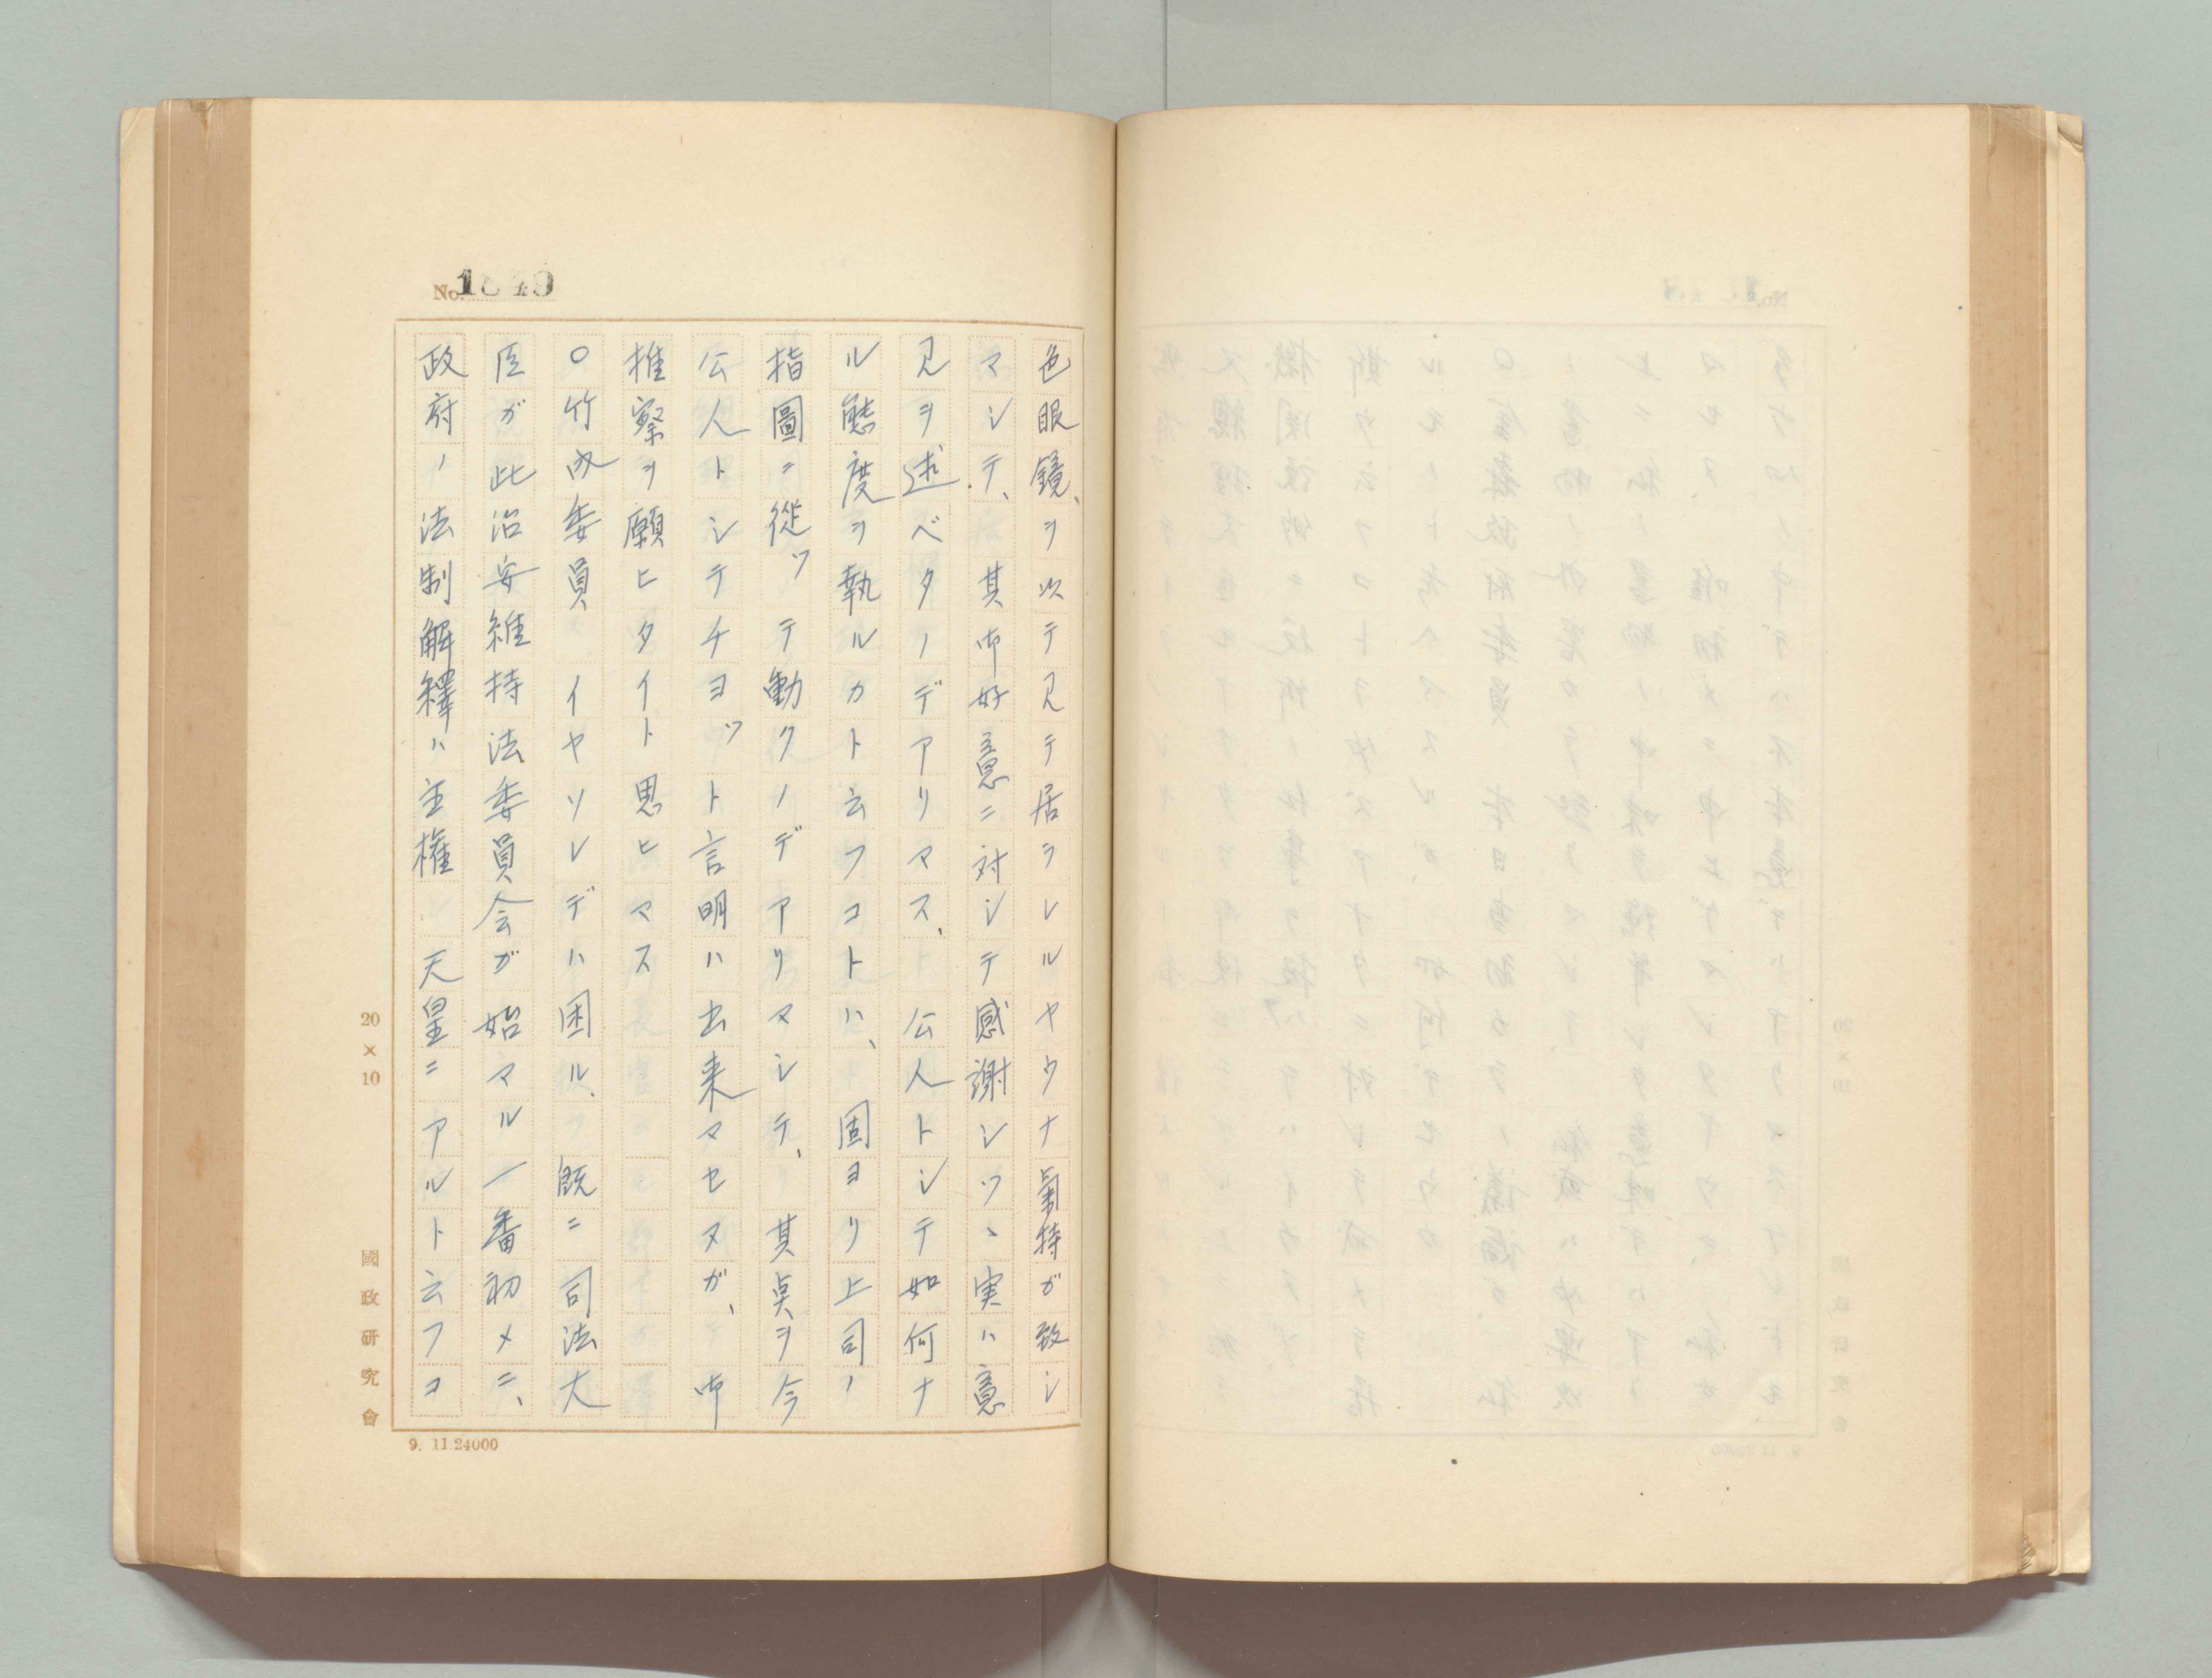 No. 1849
色眼鏡、ヲ以テ見テ居ラレルヤウナ氣持ガ致シ
マシテ、其御好意ニ対シテ感謝シツヽ実ハ意
見ヲ述ベタノデアリマス、公人トシテ如何ナ
ル態度ヲ執ルカト云フコトハ、固ヨリ上司ノ
指圖ニ從ツテ動クノデアリマシテ、其点ヲ今
公人トシテチヨツト言明ハ出来マセヌガ、御
推察ヲ願ヒタイト思ヒマス
〇竹内委員 イヤソレデハ困ル、既ニ司法大
臣ガ此治安維持法委員会ガ始マル一番初メニ、
政府ノ法制解釋ハ主権 天皇ニアルト云フコ
20×10
國政研究會
9. 11.24000